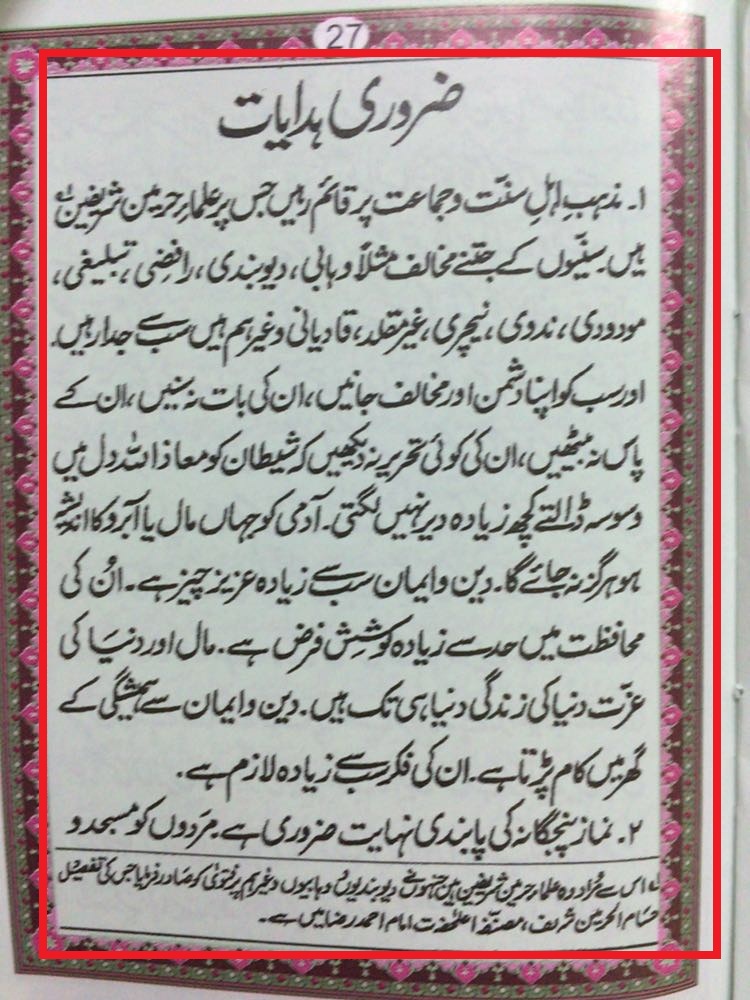 27
ضروری ہدایات
۱۔ مذہبِ اہلِ سنّت و جماعت پر قائم رہیں جس پر علماءِ حرمین شریفین لہ
ہیں۔ سنّیوں کے جتنے مخالف مثلاً وہابی، دیوبندی، رافضی، تبلیغی،
مودودی، ندوی، نیچری، غیر مقلد، قادیانی وغیرہم ہیں سب سے جدا رہیں۔
اور سب کو اپنا دشمن اور مخالف جانیں، ان کی بات نہ سنیں، ان کے
پاس نہ بیٹھیں، ان کی کوئی تحریر نہ دیکھیں کہ شیطان کو معاذ اللہ دل میں
وسوسہ ڈالتے کچھ زیادہ دیر نہیں لگتی۔ آدمی کو جہاں مال یا آبرو کا اندیشہ
ہو ہرگز نہ جائے گا۔ دین و ایمان سب سے زیادہ عزیز چیز ہے۔ اُن کی
محافظت میں حد سے زیادہ کوشش فرض ہے۔ مال اور دنیا کی
عزّت دنیا کی زندگی دنیا ہی تک ہیں۔ دین و ایمان سے ہمیشگی کے
گھر میں کام پڑتا ہے۔ ان کی فکر سب سے زیادہ لازم ہے۔
۲۔ نماز پنجگانہ کی پابندی نہایت ضروری ہے۔ مردوں کو مسجد و
لہ اس سے مُراد وہ علماء حرمین شریفین ہیں جنہوں نے دیوبندیوں وہابیوں وغیرہم پر فتویٰ کو صادر فرمایا جس کی تفصیل
حسام الحرمین شریف، مصنفہ اعلیٰحضرت امام احمد رضا میں ہے۔